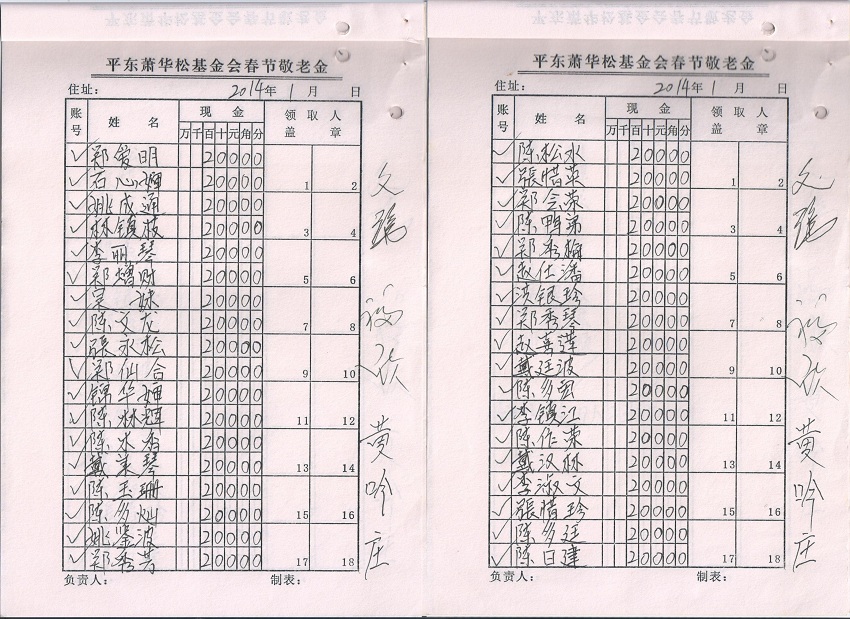 平东萧华松基金会春节敬老金
住址: 2014年 1 月 日
账号 姓 名 现 金 领 取 人
万 千 百 十 元 角 分 盖 章
✓ 郑爱明 20000
✓ 石心婵 20000 1 2
✓ 姚成通 20000
✓ 林镇枝 20000 3 4
✓ 李丽琴 20000
✓ 郑增财 20000 5 6
✓ 吴妹 20000
✓ 陈文龙 20000 7 8
✓ 張永松 20000
✓ 郑仙合 20000 9 10
✓ 锦华婵 20000
✓ 陈林輝 20000 11 12
✓ 陈水香 20000
✓ 戴美琴 20000 13 14
✓ 陈玉珊 20000
✓ 陈多灿 20000 15 16
✓ 姚鉴波 20000
✓ 郑秀芳 20000 17 18
负责人: 制表:
黄吟庄
平东萧华松基金会春节敬老金
住址: 2014年 1 月 日
账号 姓 名 现 金 领 取 人
万 千 百 十 元 角 分 盖 章
✓ 陈松水 20000
✓ 張惜英 20000 1 2
✓ 郑会荣 20000
✓ 陈鸭弟 20000 3 4
✓ 郑秀梅 20000
✓ 赵仕潘 20000 5 6
✓ 洪银珍 20000
✓ 郑秀琴 20000 7 8
✓ 赵喜莲 20000
✓ 戴廷波 20000 9 10
✓ 陈多 20000
✓ 李镇江 20000 11 12
✓ 陈作荣 20000
✓ 戴汉林 20000 13 14
✓ 李淑文 20000
✓ 張惜珍 20000 15 16
✓ 陈多廷 20000
✓ 陈日建 20000 17 18
负责人: 制表:
黄吟庄